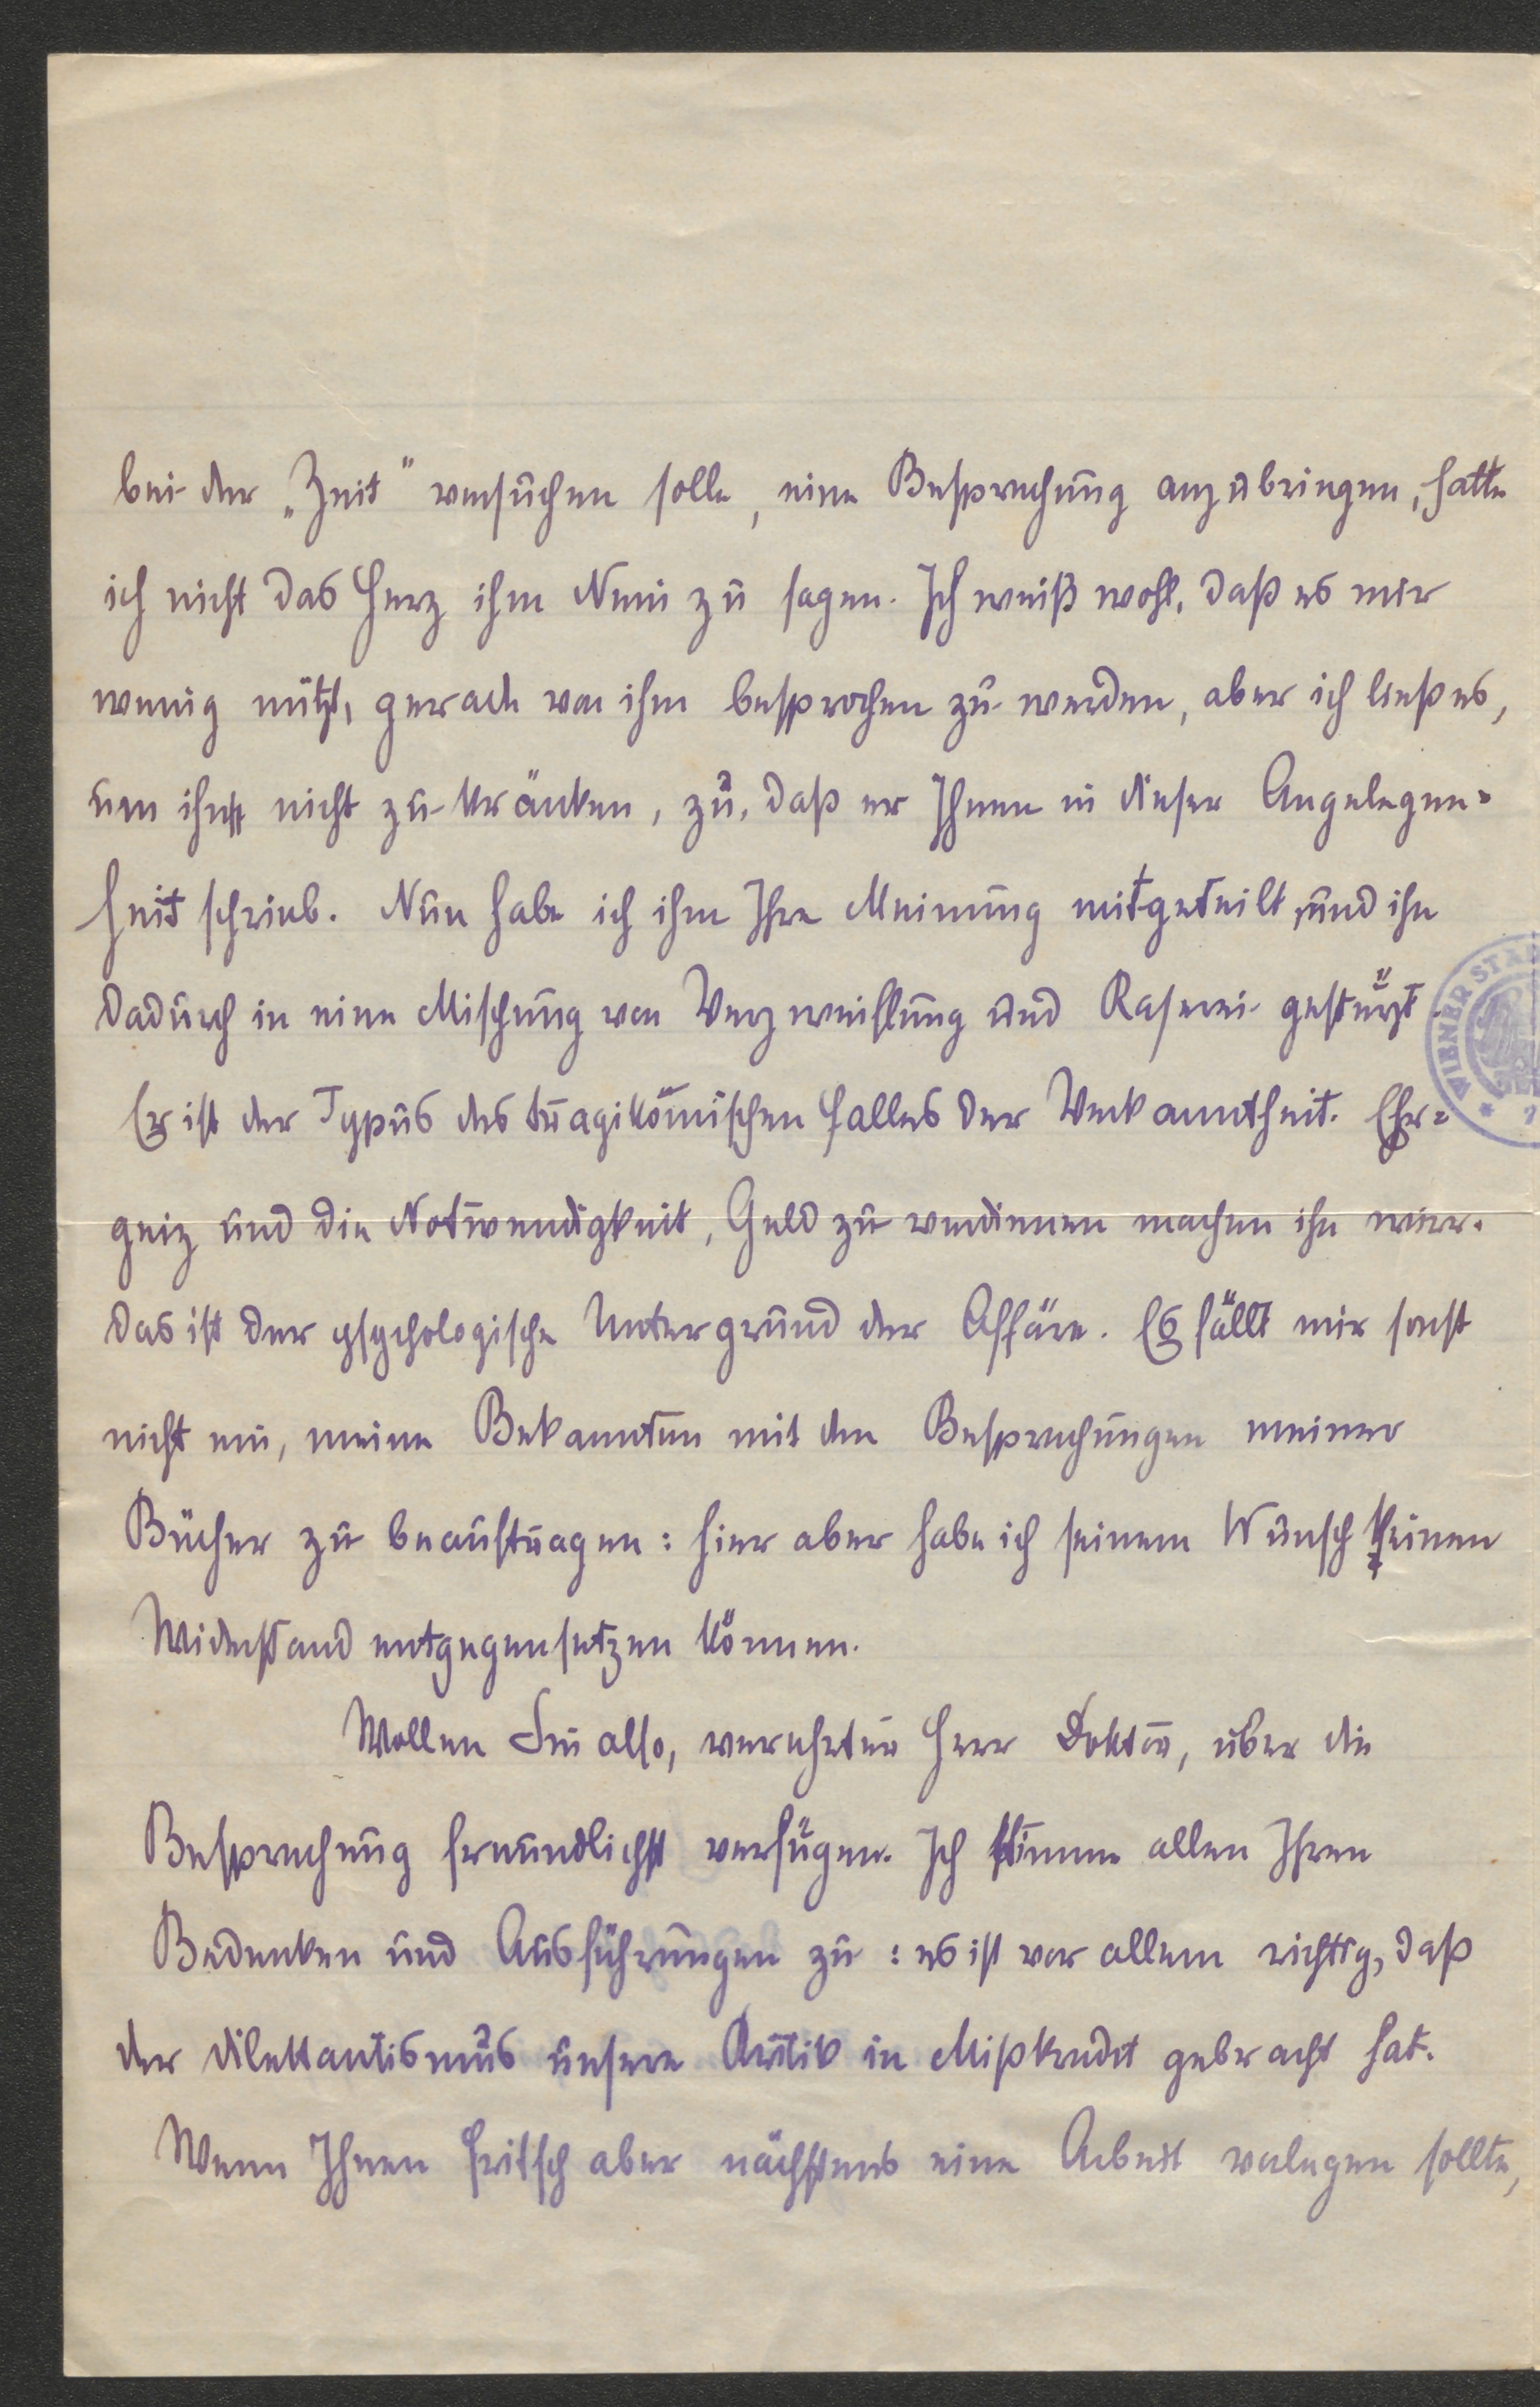 bei der „Zeit“ versuchen solle, eine Besprechung anzubringen, hatte
ich nicht das Herz ihm Nein zu sagen. Ich weiß wohl, daß es mir
wenig nützt, gerade von ihm besprochen zu werden, aber ich ließ es,
um ihn nicht zu kränken, zu, daß er Ihnen in dieser Angelegen-
heit schrieb. Nun habe ich ihm Ihre Meinung mitgeteilt, und ihn
dadurch in eine Mischung von Verzweiflung und Raserei gestürzt.
Er ist der Typus des tragikomischen Falles der Verkanntheit. Ehr-
geiz und die Notwendigkeit, Geld zu verdienen machen ihn wirr.
Das ist der psychologische Untergrund der Affäre. Es fällt mir sonst
nicht ein, meine Bekannten mit den Besprechungen meiner
Bücher zu beauftragen: hier aber habe ich seinem Wunsch keinen
Widerstand entgegensetzen können.
Wollen Sie also, verehrter Herr Doktor, über die
Besprechung freundlichst verfügen. Ich stimme allen Ihren
Bedenken und Ausführungen zu: es ist vor allem richtig, daß
der Dilettantismus unsere Kritik in Mißkredit gebracht hat.
Wenn Ihnen Fritsch aber nächstens eine Arbeit vorlegen sollte,
WIENER STAD